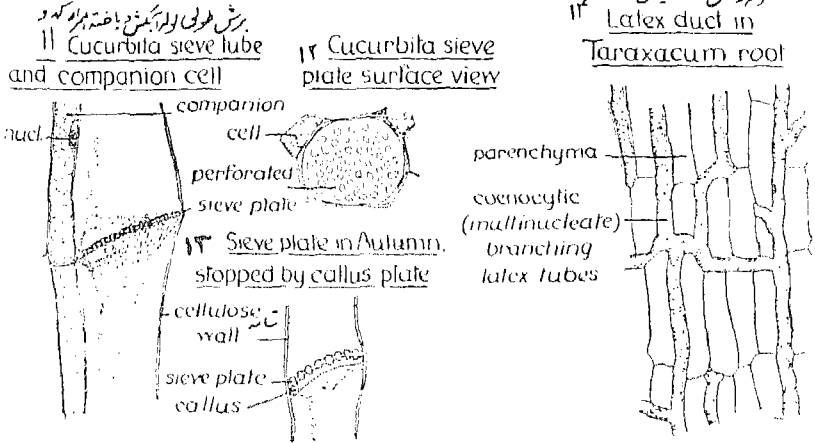 برش طولی لوله آبکش و یاخته همراه کدو
11 Cucurbita sieve tube
and companion cell
nucl.
companion
cell
perforated
sieve plate
۱۲ Cucurbita sieve
plate surface view
۱۳ Sieve plate in Autumn.
stopped by callus plate
cellulose
wall
sieve plate
callus
۱۴
Latex duct in
Taraxacum root
parenchyma
coenocytic
(multinucleate)
branching
latex tubes